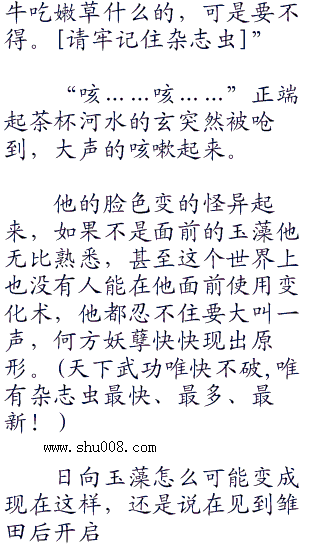 牛吃嫩草什么的，可是要不
得。[请牢记住杂志虫]”
“咳……咳……”正端
起茶杯河水的玄突然被呛
到，大声的咳嗽起来。
他的脸色变的怪异起
来，如果不是面前的玉藻他
无比熟悉，甚至这个世界上
也没有人能在他面前使用变
化术，他都忍不住要大叫一
声，何方妖孽快快现出原
形。(天下武功唯快不破,唯
有杂志虫最快、最多、最
新！)
www.shu008.com
日向玉藻怎么可能变成
现在这样，还是说在见到雏
田后开启